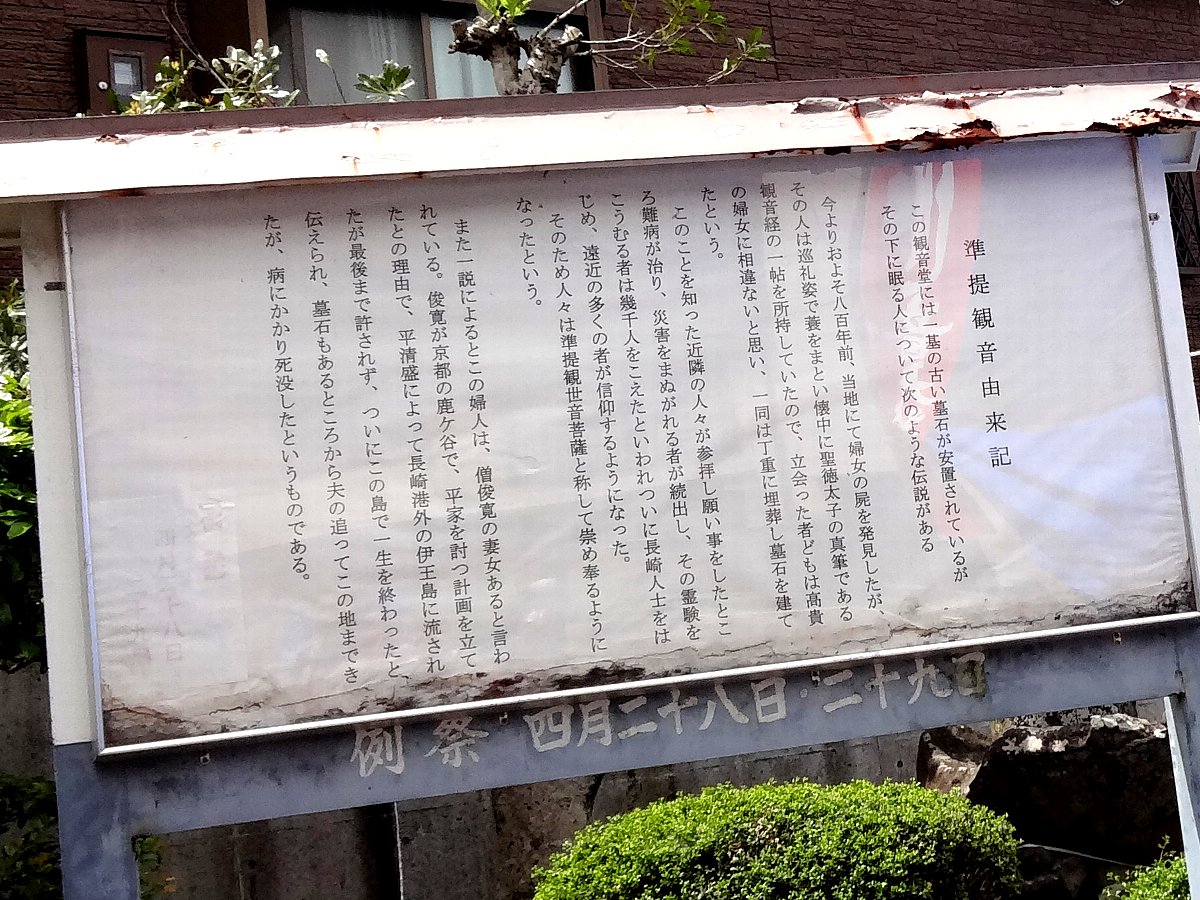 準提観音由来記
この観音堂には一基の古い墓石が安置されているが
その下に眠る人について次のような伝説がある
今よりおよそ八百年前、当地にて婦女の屍を発見したが、
その人は巡礼姿で蓑をまとい懐中に聖徳太子の真筆である
観音経の一帖を所持していたので、立会った者どもは高貴
の婦女に相違ないと思い、一同は丁重に埋葬し墓石を建て
たという。
このことを知った近隣の人々が参拝し願い事をしたとこ
ろ難病が治り、災害をまぬがれる者が続出し、その霊験を
こうむる者は幾千人をこえたといわれついに長崎人士をは
じめ、遠近の多くの者が信仰するようになった。
そのため人々は準提観世音菩薩と称して崇め奉るように
なったという。
また一説によるとこの婦人は、僧俊寛の妻女あると言わ
れている。俊寛が京都の鹿ケ谷で、平家を討つ計画を立て
たとの理由で、平清盛によって長崎港外の伊王島に流され
たが最後まで許されず、ついにこの島で一生を終わったと、
伝えられ、墓石もあるところから夫の追ってこの地まできたが、病にかかり死没したというものである。
例祭 四月二十八日・二十九日